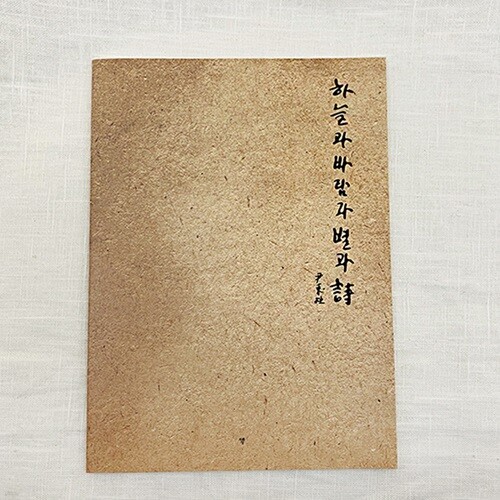 하늘과바람과별과詩
尹東柱